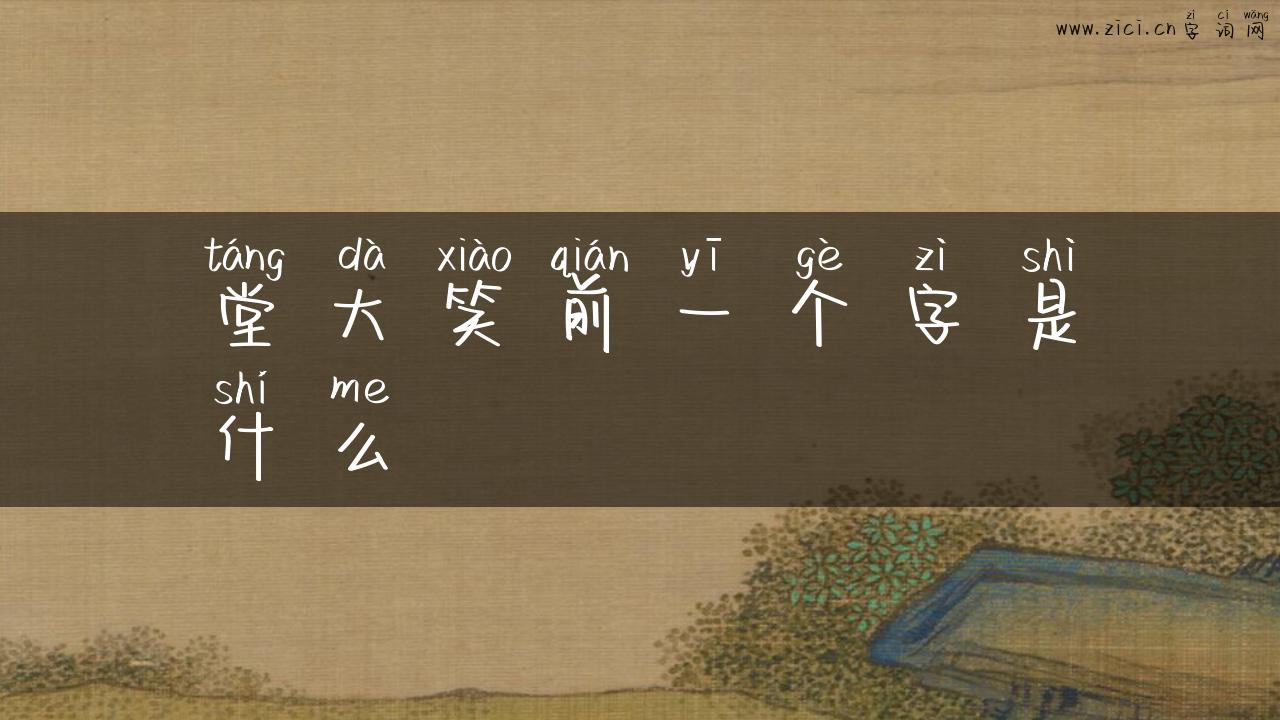 zì cí wǎng
www.zici.cn 字词网
táng dà xiào qián yī gè zì shì
堂大笑前一个字是
shí me
什么